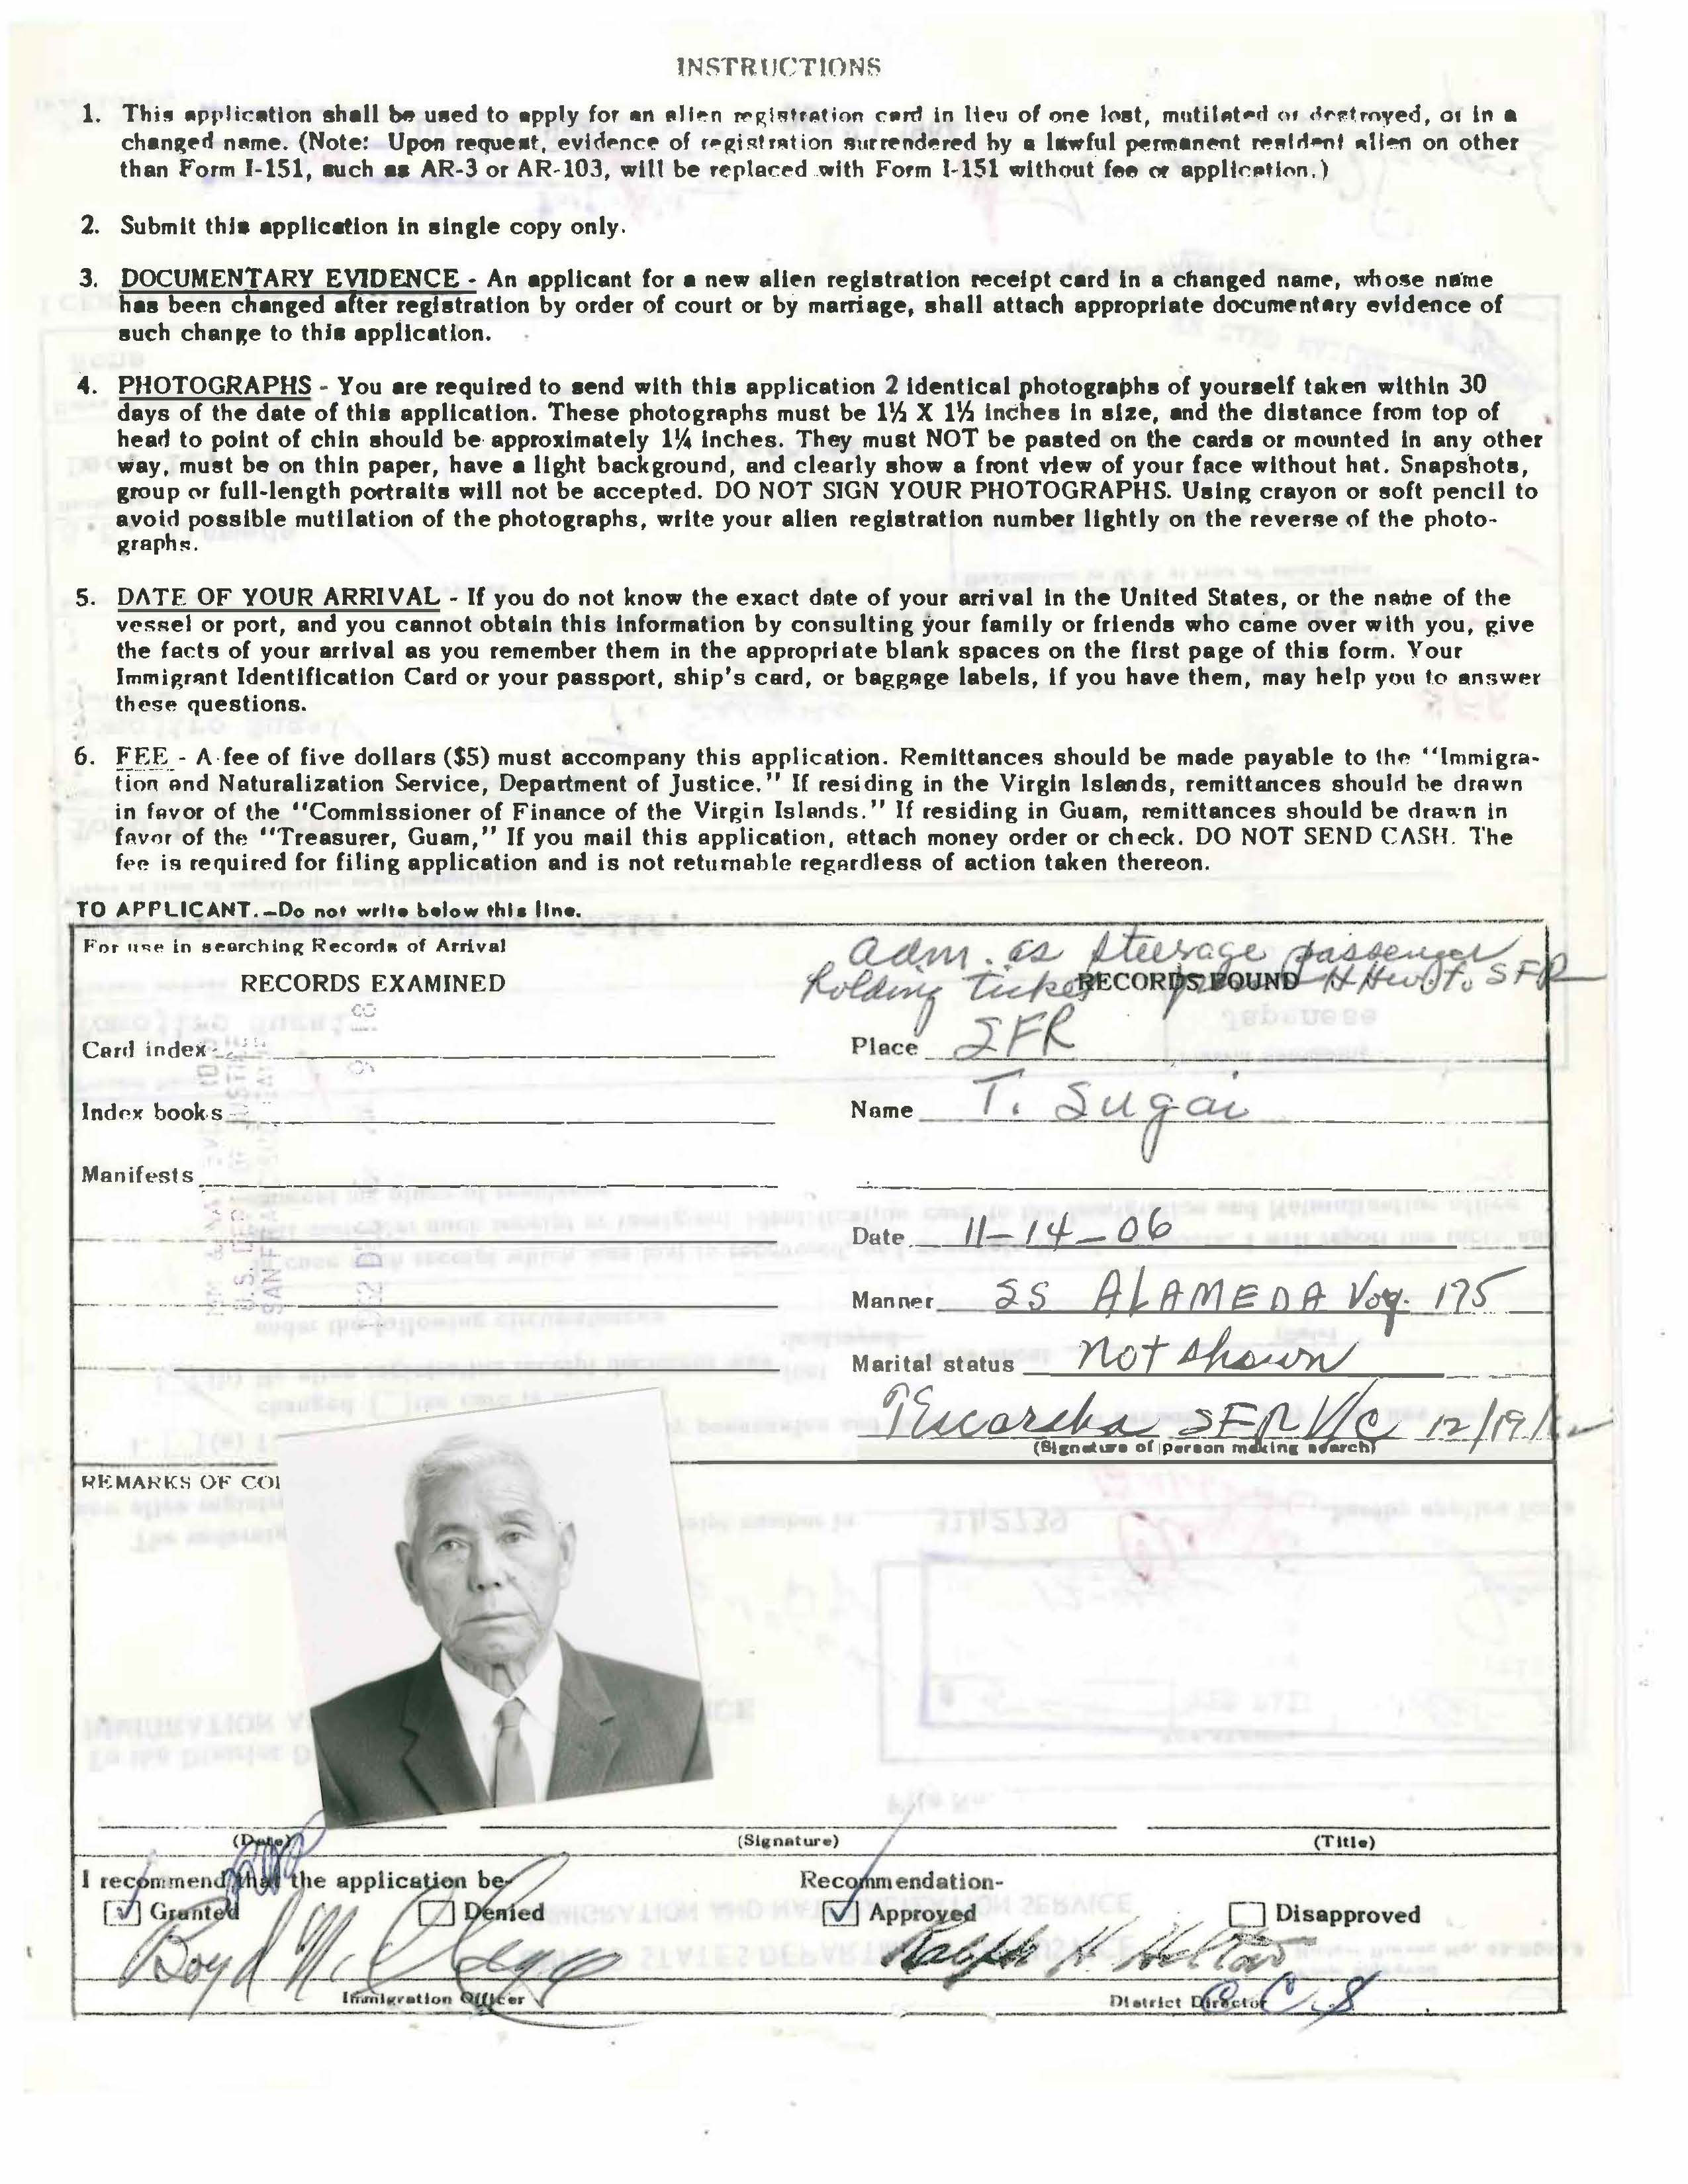 INSTRUCTIONS
1. This application shall be used to apply for an alien registration card in lieu of one lost, mutilated or destroyed, or in a
changed name. (Note: Upon request, evidence of registration surrendered by a lawful permanent resident alien on other
than Form I-151, such as AR-3 or AR-103, will be replaced with Form I-151 without fee or application.)
2. Submit this application in single copy only.
3. DOCUMENTARY EVIDENCE - An applicant for a new alien registration receipt card in a changed name, whose name
has been changed after registration by order of court or by marriage, shall attach appropriate documentary evidence of
such change to this application.
4. PHOTOGRAPHS - You are required to send with this application 2 identical photographs of yourself taken within 30
days of the date of this application. These photographs must be 1½ X 1½ inches in size, and the distance from top of
head to point of chin should be approximately 1¼ inches. They must NOT be pasted on the cards or mounted in any other
way, must be on thin paper, have a light background, and clearly show a front view of your face without hat. Snapshots,
group or full-length portraits will not be accepted. DO NOT SIGN YOUR PHOTOGRAPHS. Using crayon or soft pencil to
avoid possible mutilation of the photographs, write your alien registration number lightly on the reverse of the photo-
graphs.
5. DATE OF YOUR ARRIVAL - If you do not know the exact date of your arrival in the United States, or the name of the
vessel or port, and you cannot obtain this information by consulting your family or friends who came over with you, give
the facts of your arrival as you remember them in the appropriate blank spaces on the first page of this form. Your
Immigrant Identification Card or your passport, ship's card, or baggage labels, if you have them, may help you to answer
these questions.
6. FEE - A fee of five dollars ($5) must accompany this application. Remittances should be made payable to the "Immigra-
tion and Naturalization Service, Department of Justice." If residing in the Virgin Islands, remittances should be drawn
in favor of the "Commissioner of Finance of the Virgin Islands." If residing in Guam, remittances should be drawn in
favor of the "Treasurer, Guam," If you mail this application, attach money order or check. DO NOT SEND CASH. The
fee is required for filing application and is not returnable regardless of action taken thereon.
TO APPLICANT.—Do not write below this line.
For use in searching Records of Arrival
RECORDS EXAMINED
Card index
Index books
Manifests
adm. as steerage passenger
holding ticket from H to SFR
RECORDS FOUND
Place SFR
Name T. Sugai
Date 11-14-06
Manner SS ALAMEDA Voy. 175
Marital status not shown
SFR V/C 12/19/62
(Signature of person making search)
REMARKS OF COI
(Date) (Signature) (Title)
I recommend that the application be- Recommendation-
Granted Denied Approved Disapproved
Boyd
Ralph H.
Immigration Officer District Director